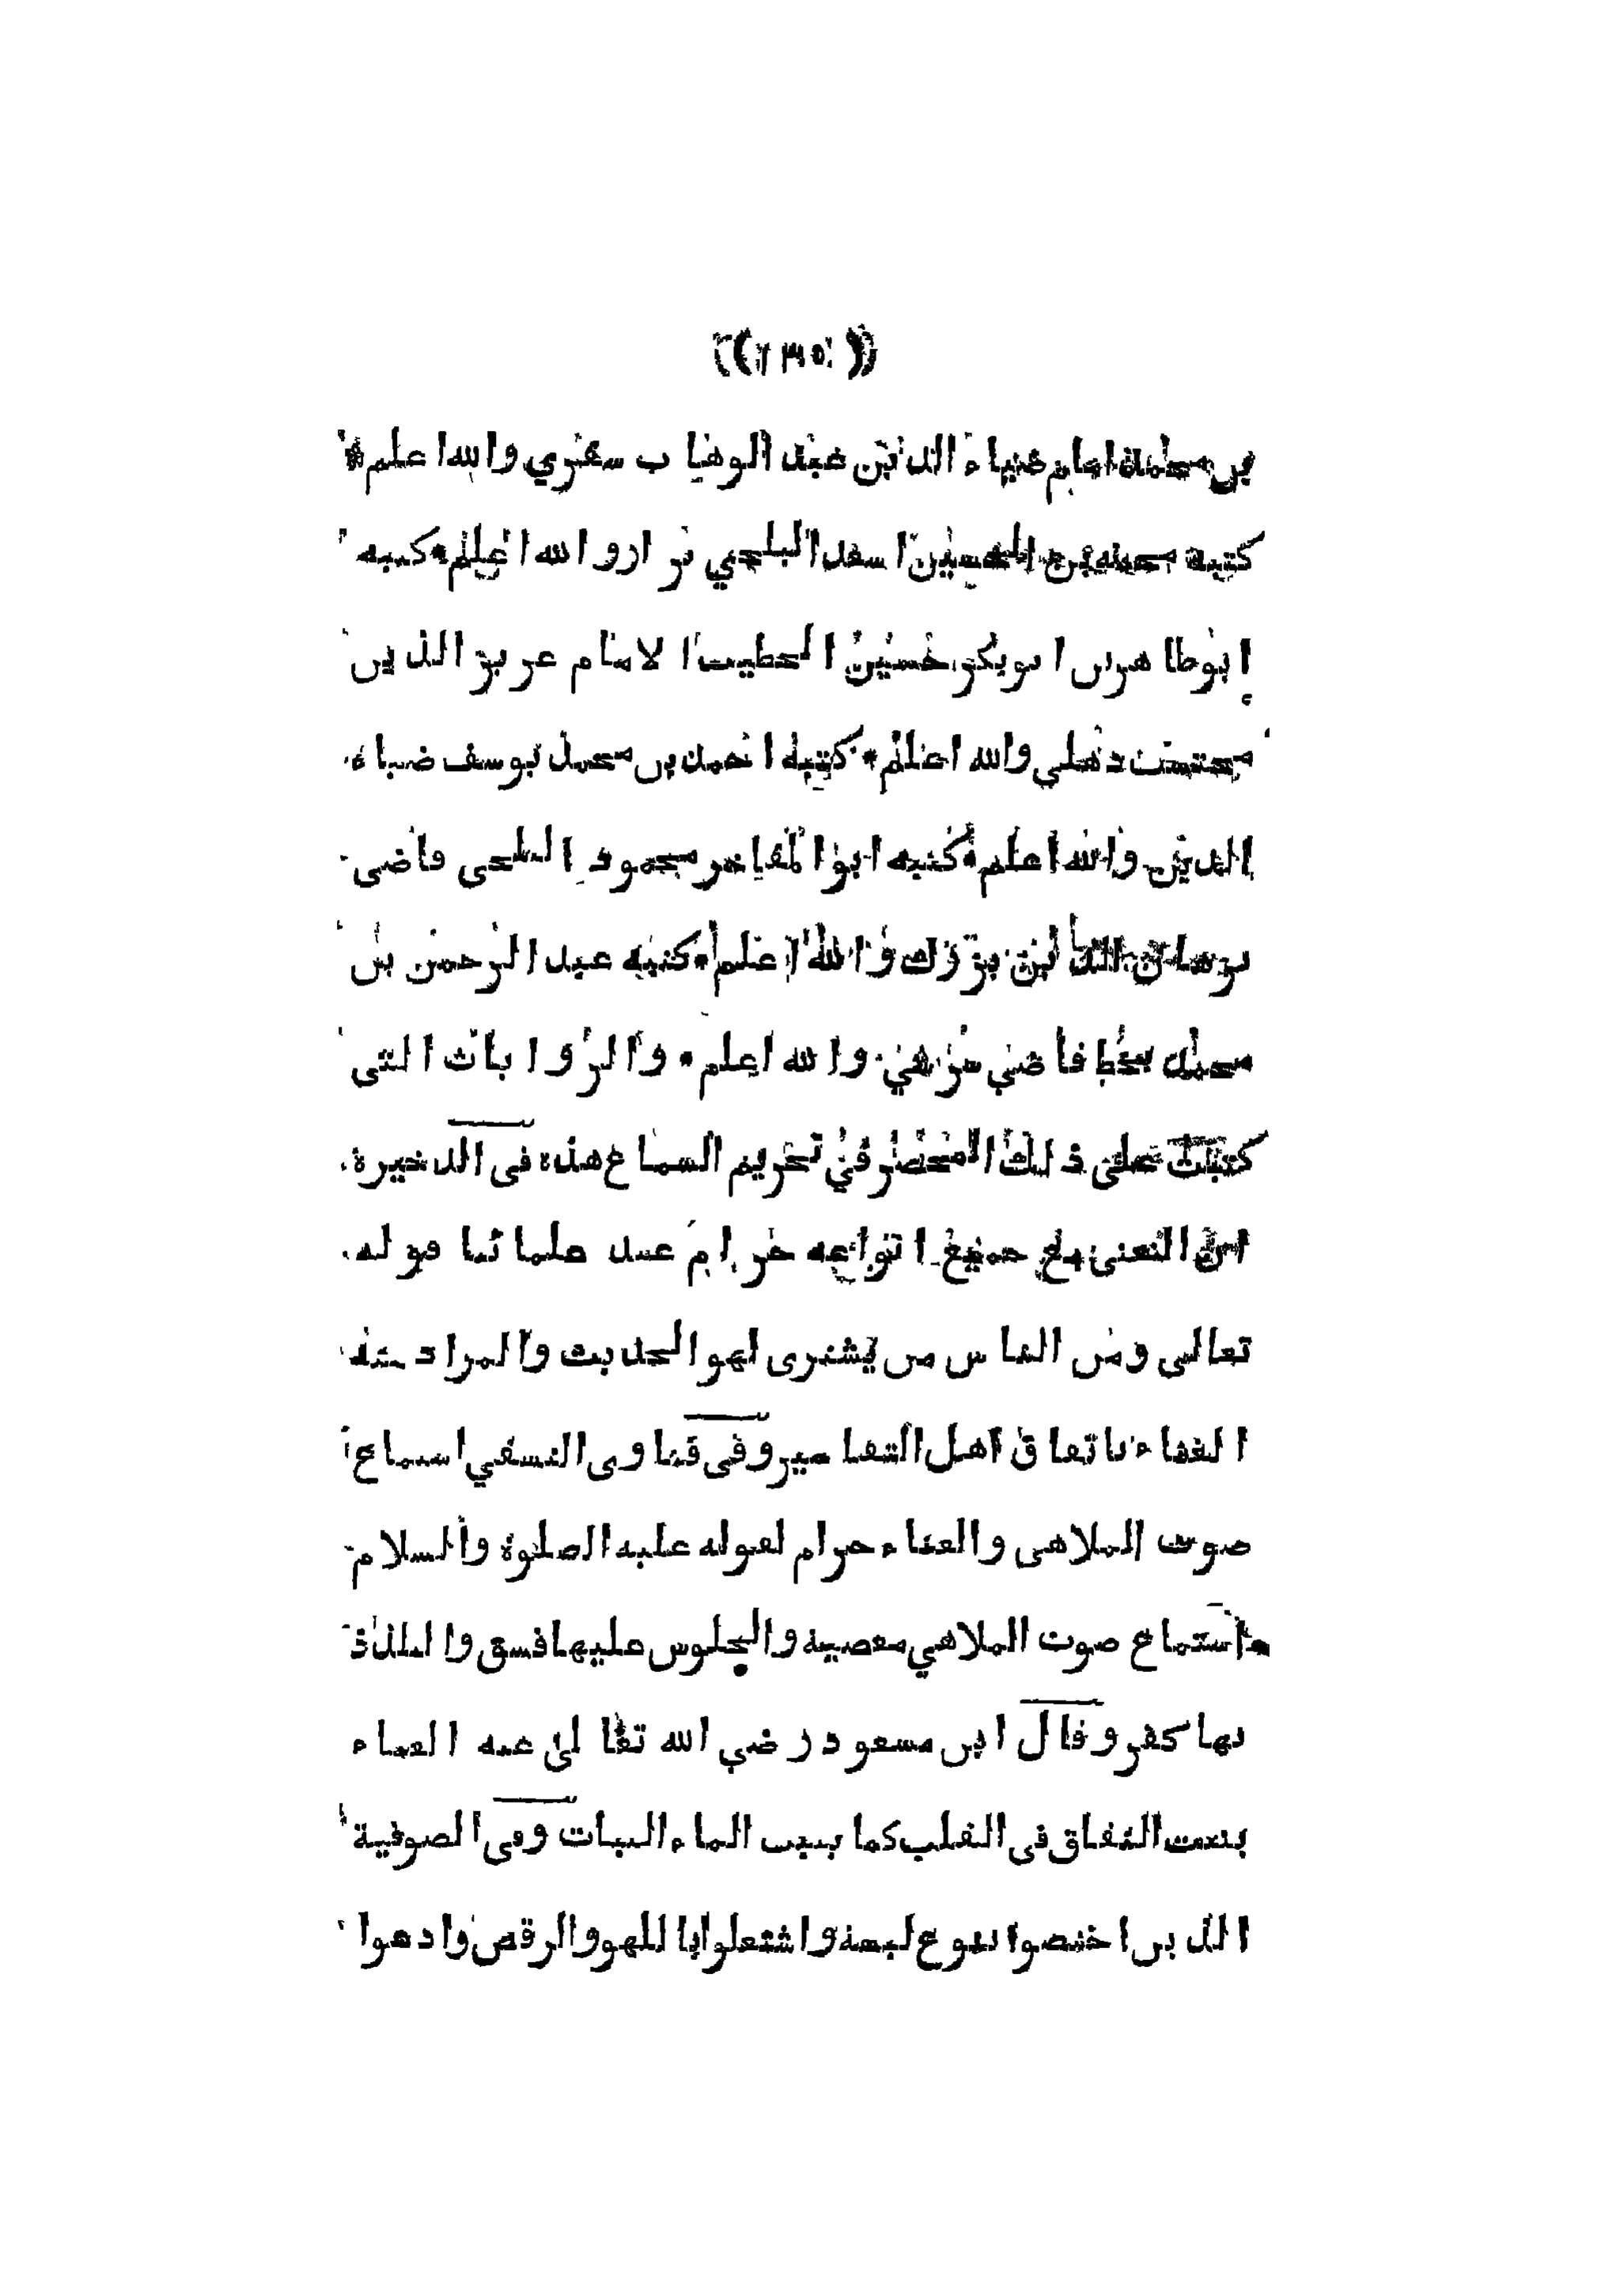 ((٢٣٥))
بن محمد امام ضياء الدين عبد الوهاب سفري والله اعلم *
كتبه محمد بن الحسين اسعد البلخي والله اعلم * كتبه
ابو طاهر بن ابو بكر حسين الخطيب الامام عزيز الدين
محتسب دهلي والله اعلم * كتبه احمد بن محمد يوسف ضياء
الدين والله اعلم * كتبه ابو المفاخر محمود البلخى قاضى
برهان الدين بزرك والله اعلم * كتبه عبد الرحمن بن
محمد بخط قاضي والله اعلم * والروايات التى
كتبت على ذلك المحضر في تحريم السماع هذه فى الذخيرة
ان التغنى مع جميع انواعه حرام عند علمائنا قوله
تعالى ومن الناس من يشترى لهو الحديث والمراد منه
الغناء باتفاق اهل التفاسير وفى فتاوى النسفي استماع
صوت الملاهى والغناء حرام لقوله عليه الصلوة والسلام
استماع صوت الملاهي معصية والجلوس عليها فسق والتلذذ
بها كفر وقال ابن مسعود رضي الله تعالى عنه الغناء
ينبت النفاق فى القلب كما ينبت الماء النبات وفى الصوفية
الذين اختصوا بنوع لبسة واشتغلوا باللهو والرقص وادعوا